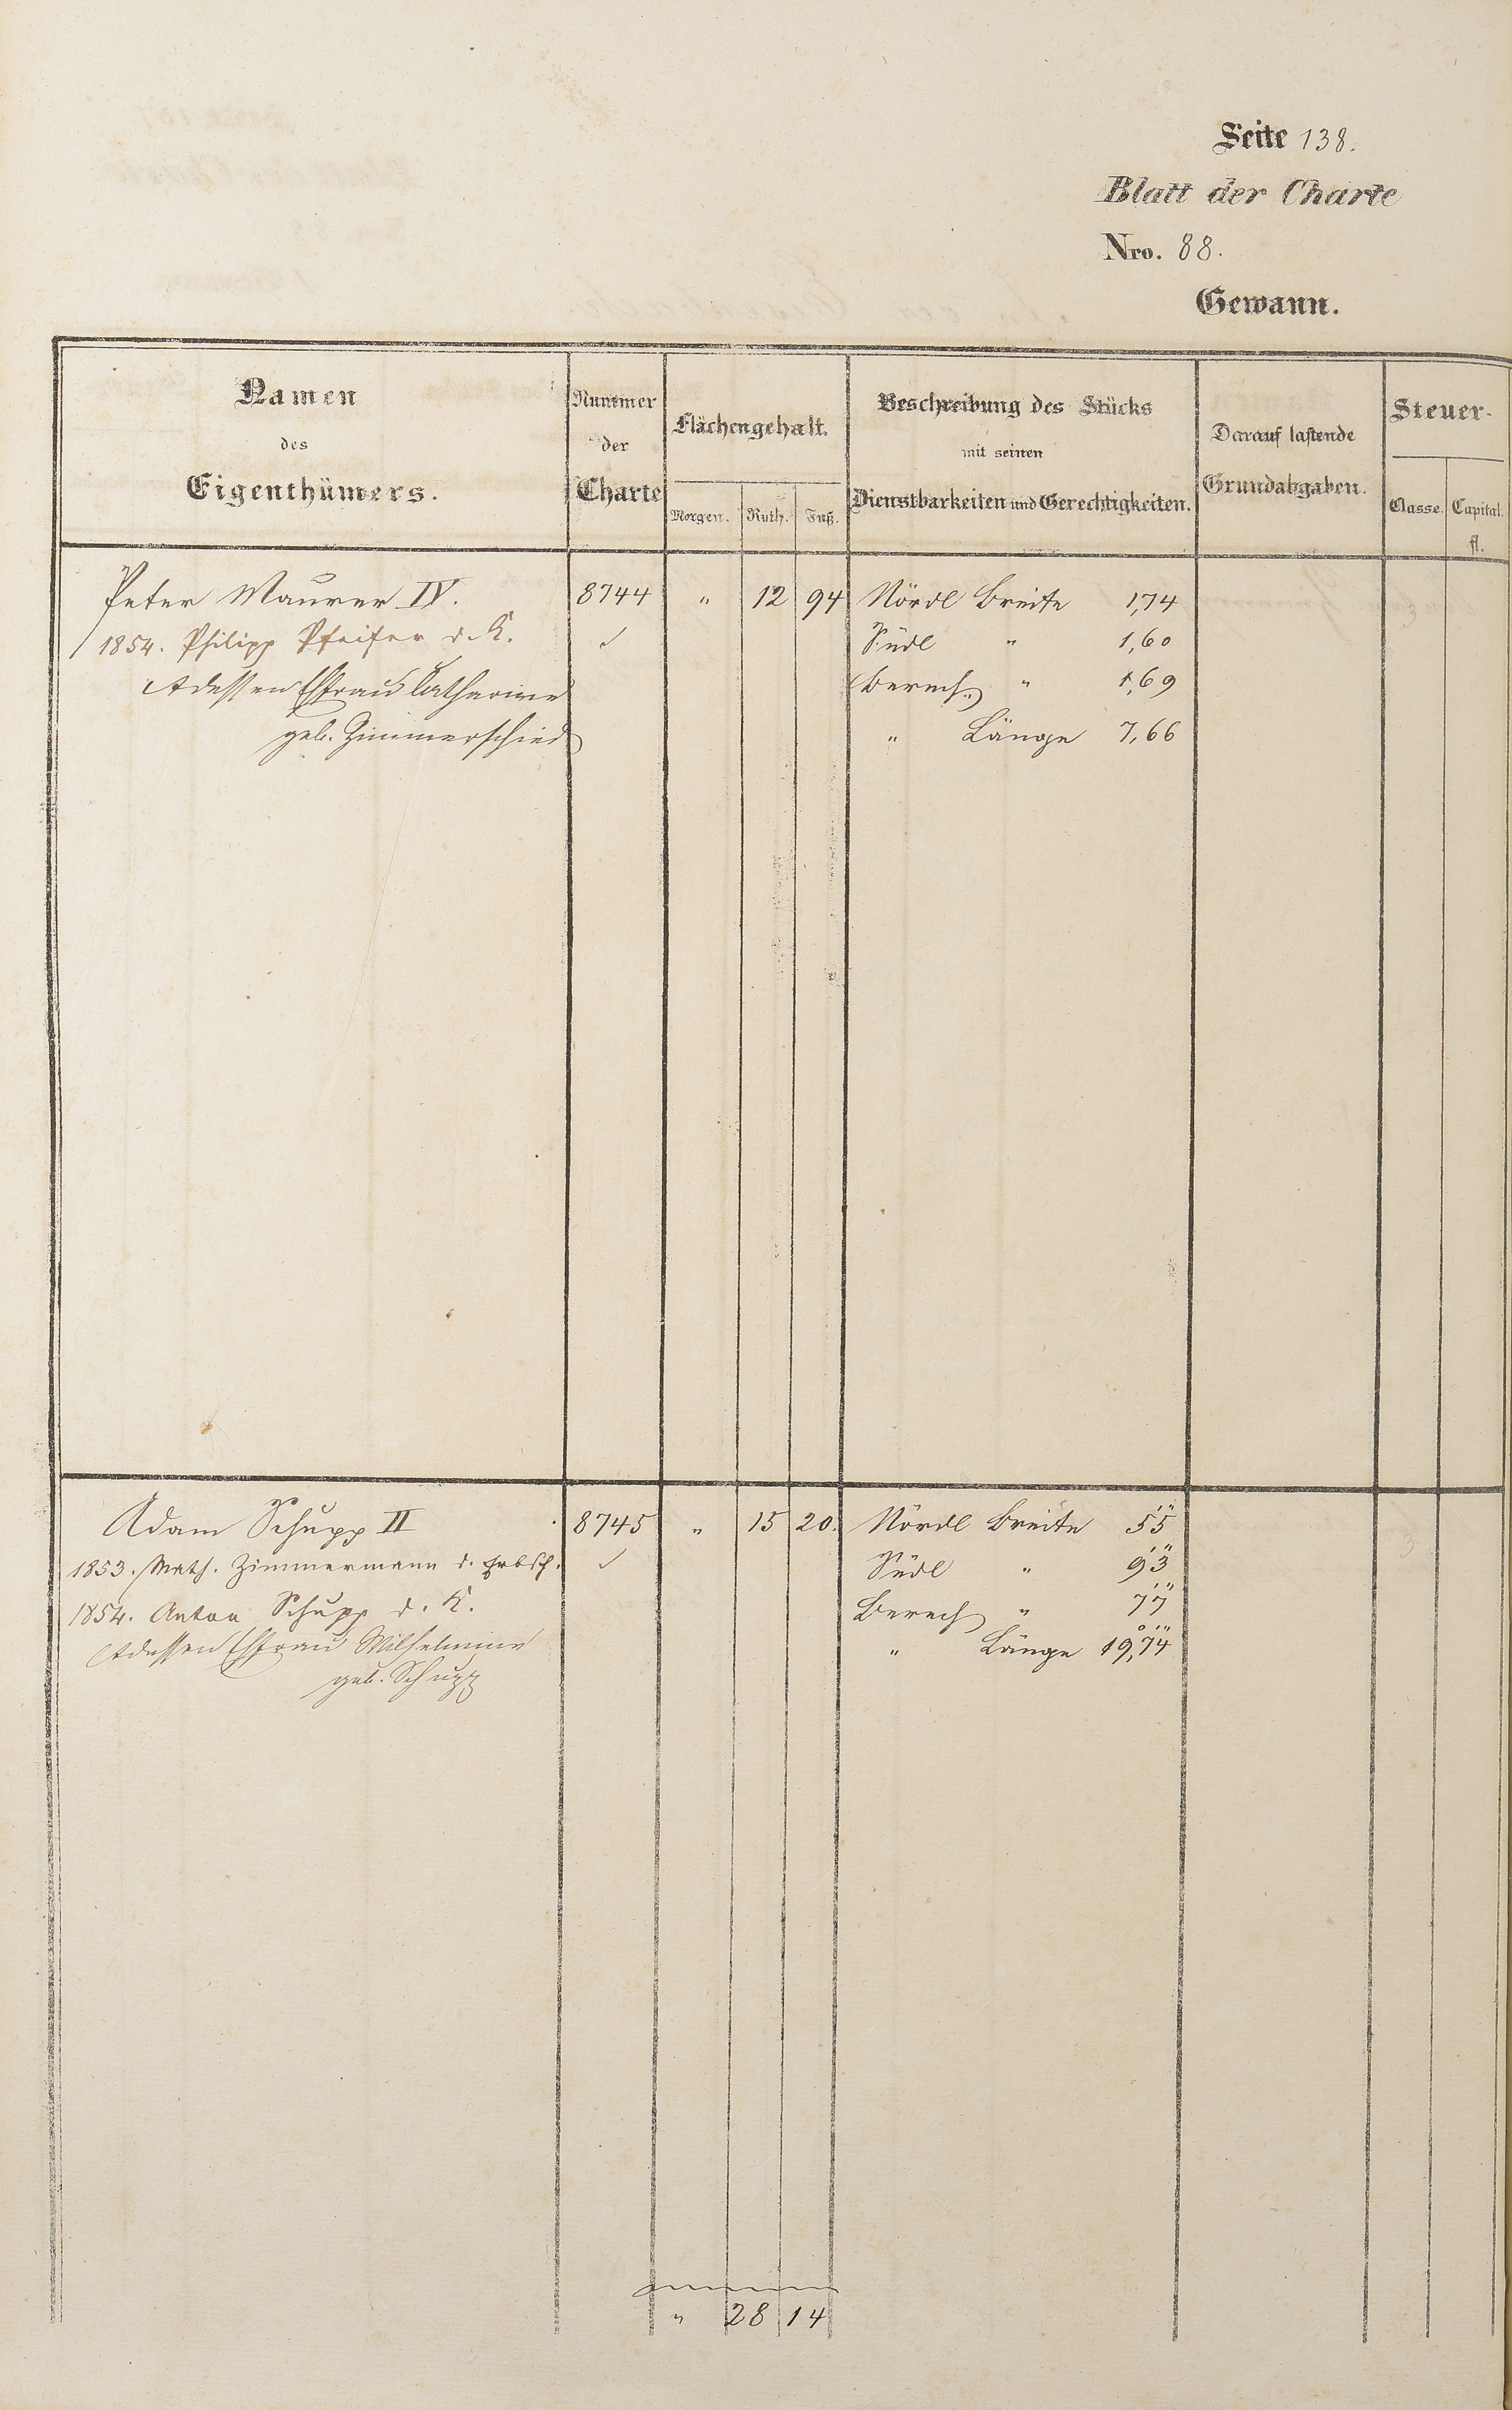 Seite 138.
Blatt der Charte
Nro. 88.
Gewann.
Namen
des
Eigenthümers.
Nummer
der
Charte
Flächengehalt.
Morgen. Ruth. Fuß.
Beschreibung des Stücks
mit seinen
Dienstbarkeiten und Gerechtigkeiten.
Darauf lastende
Grundabgaben.
Steuer-
Classe. Capital.
fl.
Peter Maurer IV. 8744 " 12 94 Nördl Breite 1,74
1854. Philipp Pfeifer d. K. Südl " 1,60
dessen Ehfrau Catharine Berech. " 1,69
geb. Zimmerschied " Länge 7,66
3
Adam Schupp II 8745 " 15 20. Nördl Breite 5'5"
1853. Math. Zimmermann d. Erbsch. Südl " 9'3"
1854. Anton Schupp d. K. Berech " 7'7"
dessen Ehfrau Wilhelmine " Länge 19,74
geb. Schupp
3
" 28 14